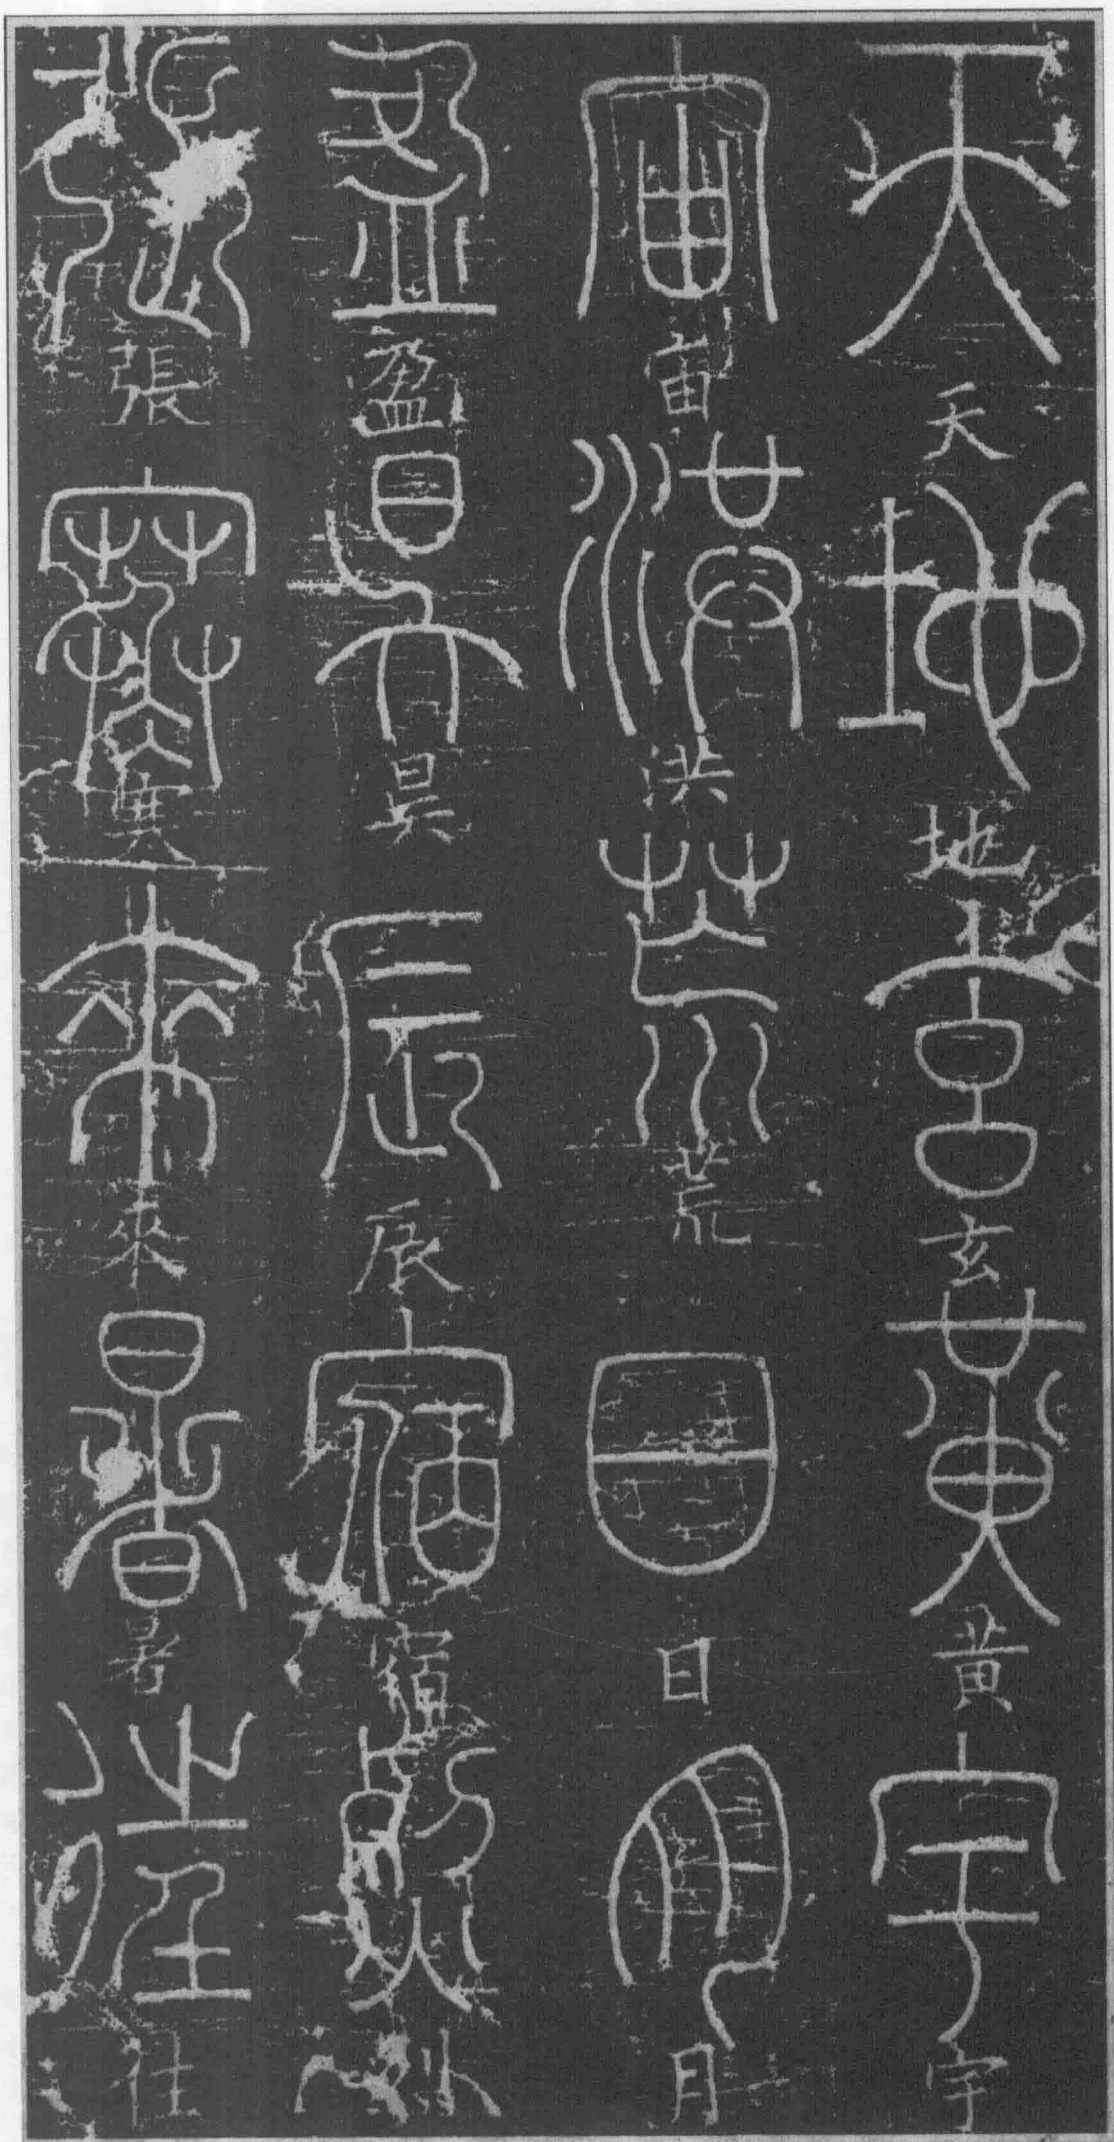 天天地地玄玄黃黄宇宇
宙宙洪洪荒荒日日月月
盈盈昃昃辰辰宿宿列列
張張寒寒來來暑暑往往